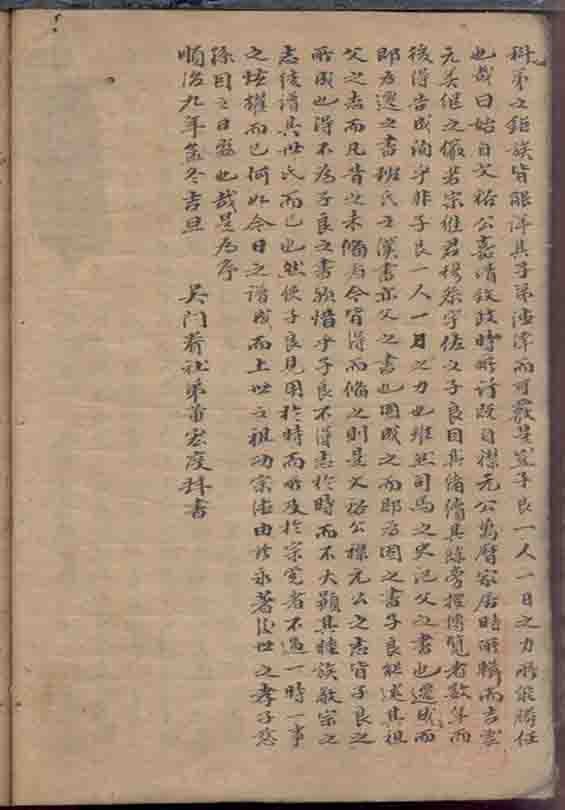 科弟之鉅族皆眼洋其子弟潼淳而可觀是豈子良一人一日之力所能勝任
也哉曰始自文裕公嘉清銓政時所訪既自襟元公萬曆家居時所輯而吉雲
元美继之儀若宗継君楊蔡宇佐之子良因其緒續其錄旁搜博覽者數年而
後得告成洵乎非子良一人一日之力也雖然司馬之史記父之書也遷成而
即為遷之書班氏之漢書亦父之書也固成之而即為固之書子良能述其祖
父之志而凡昔之未備者今皆得而備之則是文裕公襟元公之志皆子良之
所成也得不為子良之書欤惜乎子良不得志於時而不大顯其睦族敬宗之
志徒譜其世氏而已也然使子良見用於時而所及於宗党者不過一時一事
之炫耀而已何如今日之譜成而上世之祖功宗德由於永著後世之孝子慈
孫因之日盛也哉是為序
順治九年孟冬吉旦 吳門眷社弟首宏度科書